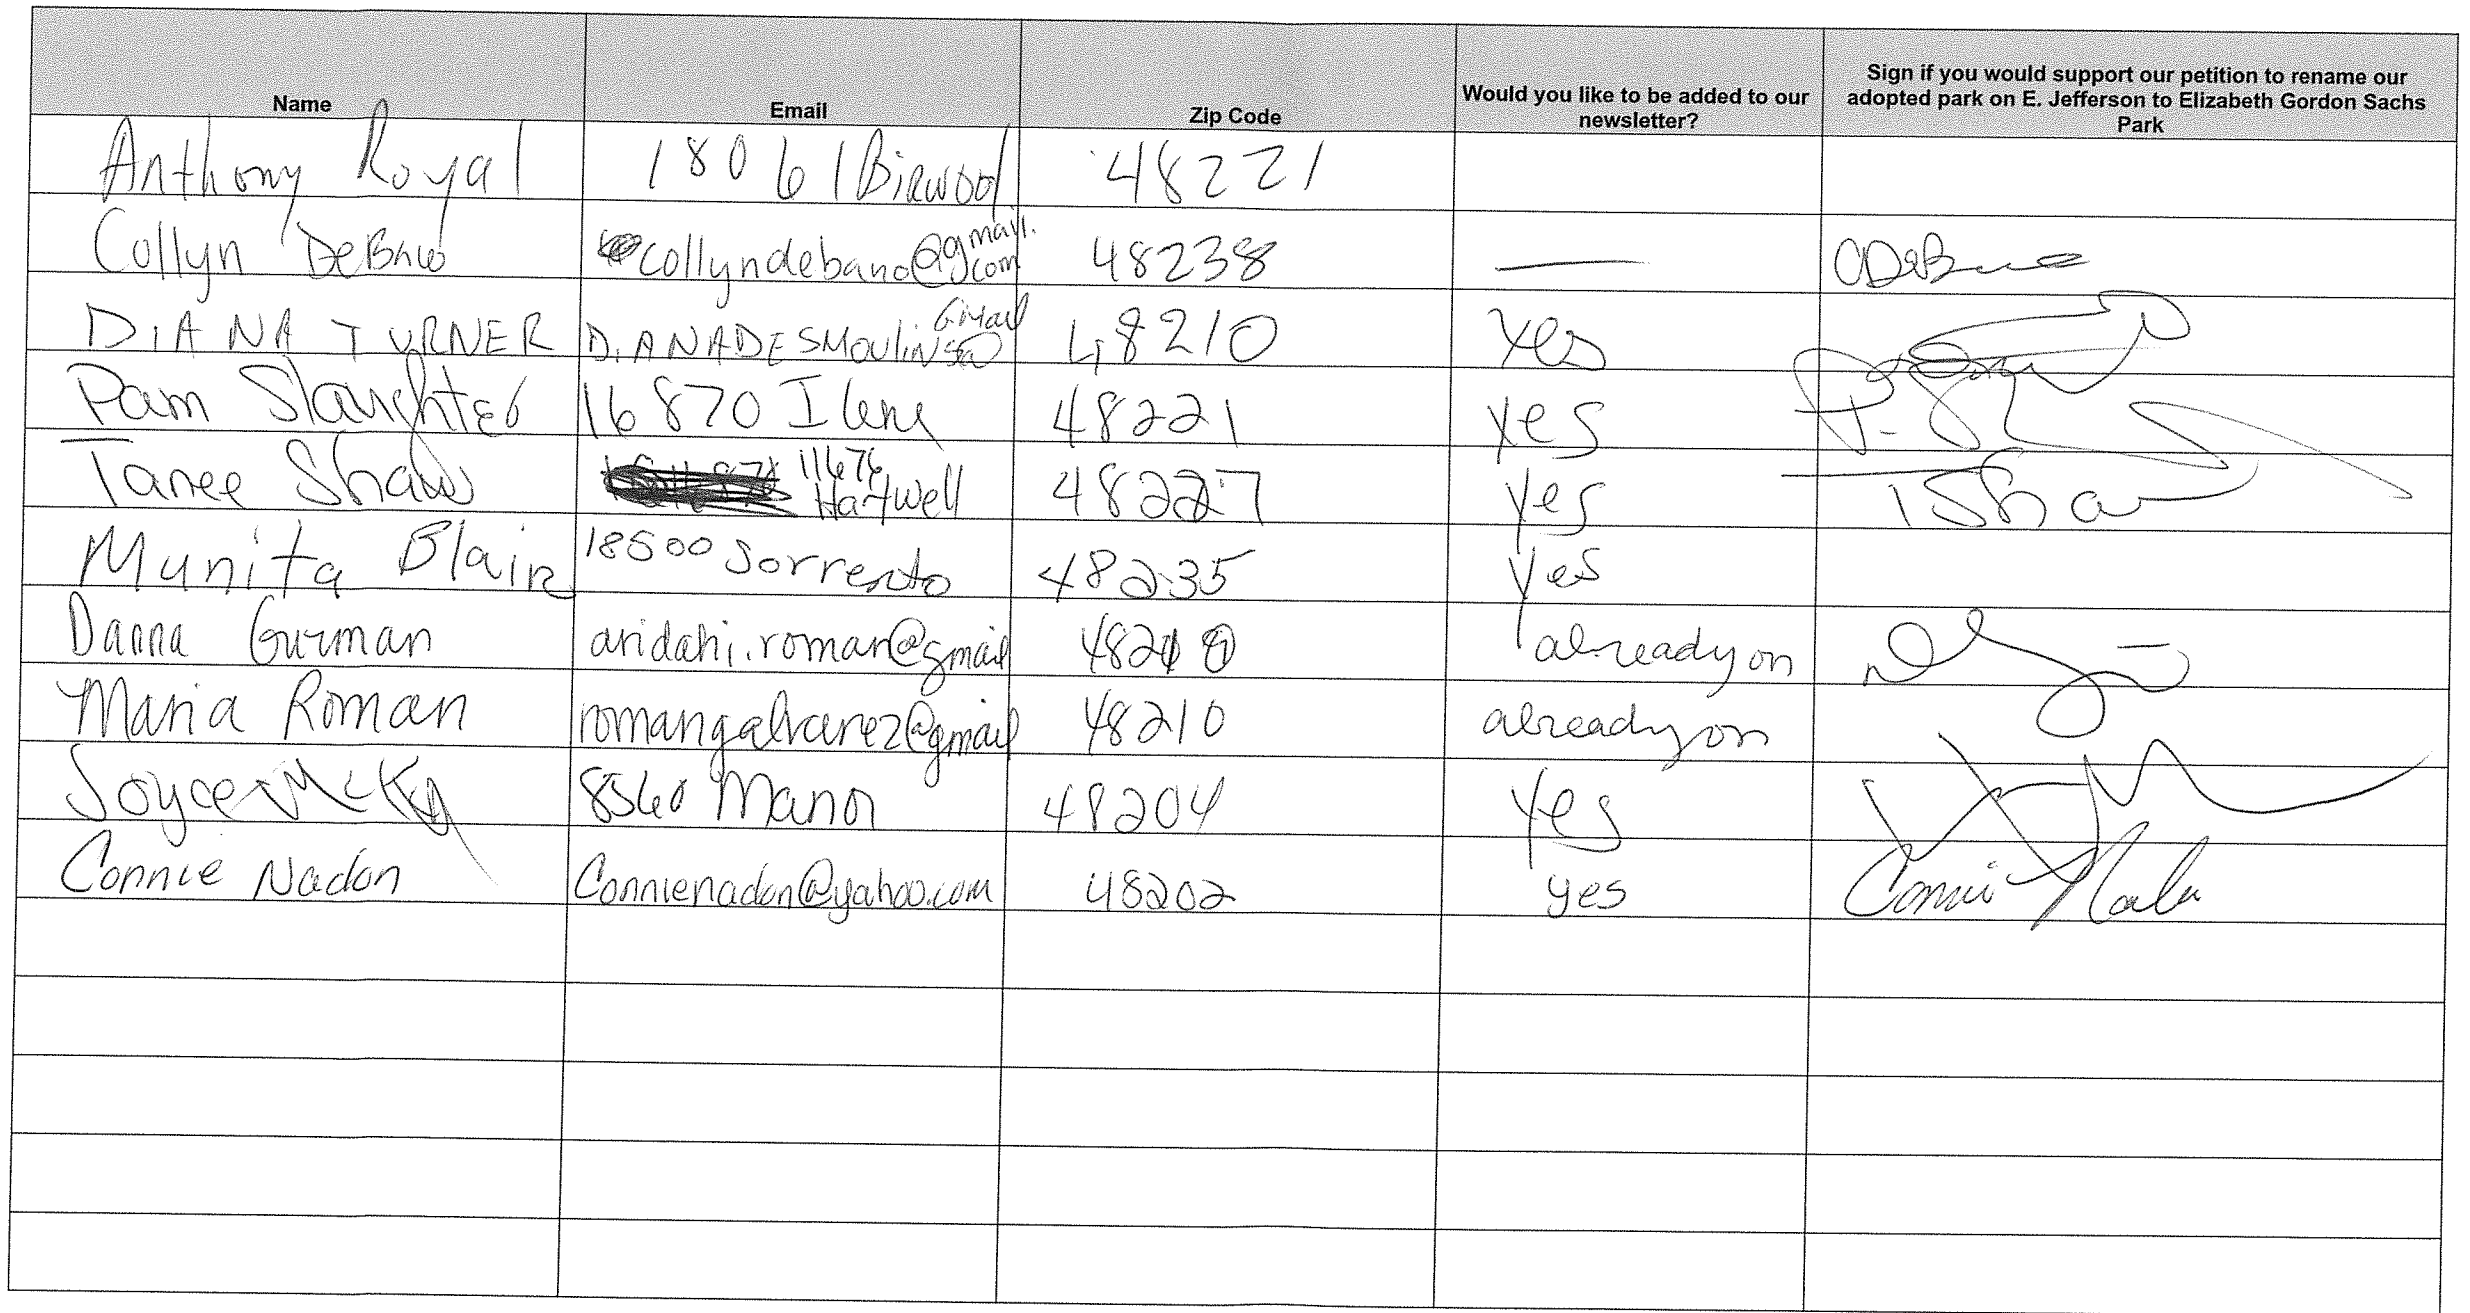 Name Email Zip Code Would you like to be added to our newsletter? Sign if you would support our petition to rename our adopted park on E. Jefferson to Elizabeth Gordon Sachs Park
Anthony Royal 18061 Birwood 48221
Collyn DeBano collyndebano@gmail.com 48238 —
DIANA TURNER DIANADESMOULINS@ Gmail 48210 Yes
Pam Slaughter 16870 Ilene 48221 yes P. Sl
Tanee Shaw 11676 Hartwell 48227 yes TSha
Munita Blair 18500 Sorrento 48235 yes
Danna Guzman aridahi.roman@gmail 48210 already on
Maria Roman romangalvarez@gmail 48210 already on
Joyce McKay 8560 Manor 48204 Yes
Connie Nadon Connienadon@yahoo.com 48202 yes Connie Nadon